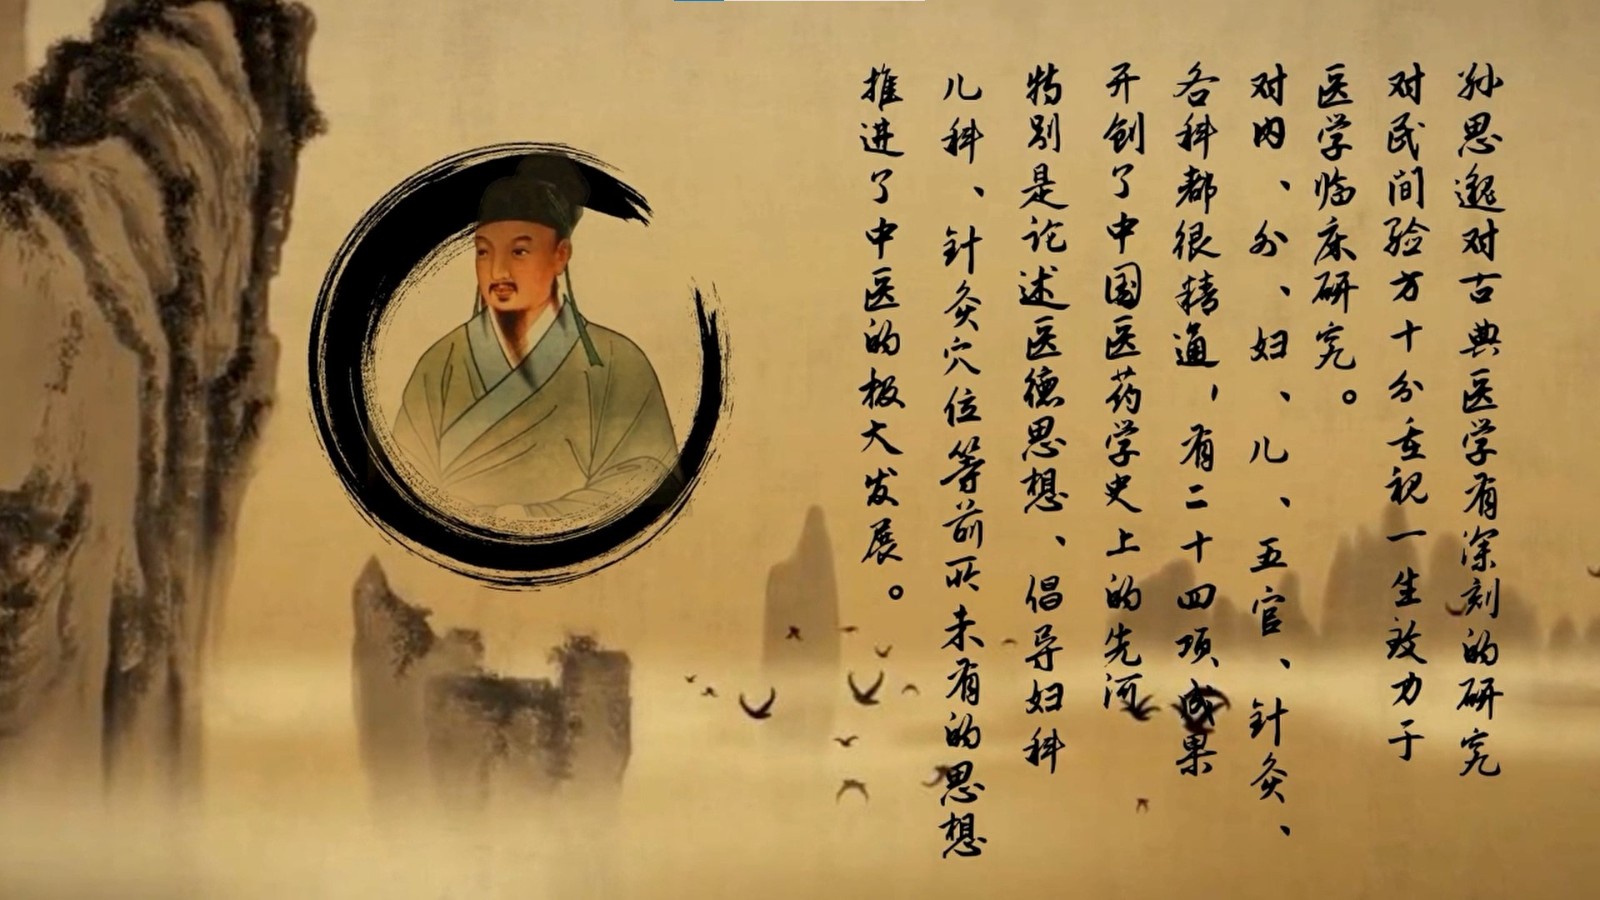 孙思邈对古典医学有深刻的研究
对民间验方十分重视一生致力于
医学临床研究。
对内、外、妇、儿、五官、针灸、
各科都很精通，有二十四项成果
开创了中国医药学史上的先河
特别是论述医德思想、倡导妇科
儿科、针灸穴位等前所未有的思想
推进了中医的极大发展。